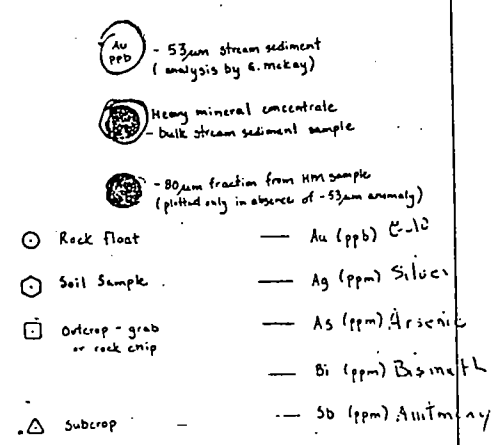 Au
ppb
- 53µm stream sediment
(analysis by G. McKay)
Heavy mineral concentrate
- bulk stream sediment sample
- 80µm fraction from HM sample
(plotted only in absence of -53µm anomaly)
Rock float
Soil Sample
Outcrop - grab
or rock chip
Subcrop
Au (ppb) Gold
Ag (ppm) Silver
As (ppm) Arsenic
Bi (ppm) Bismuth
Sb (ppm) Antimony